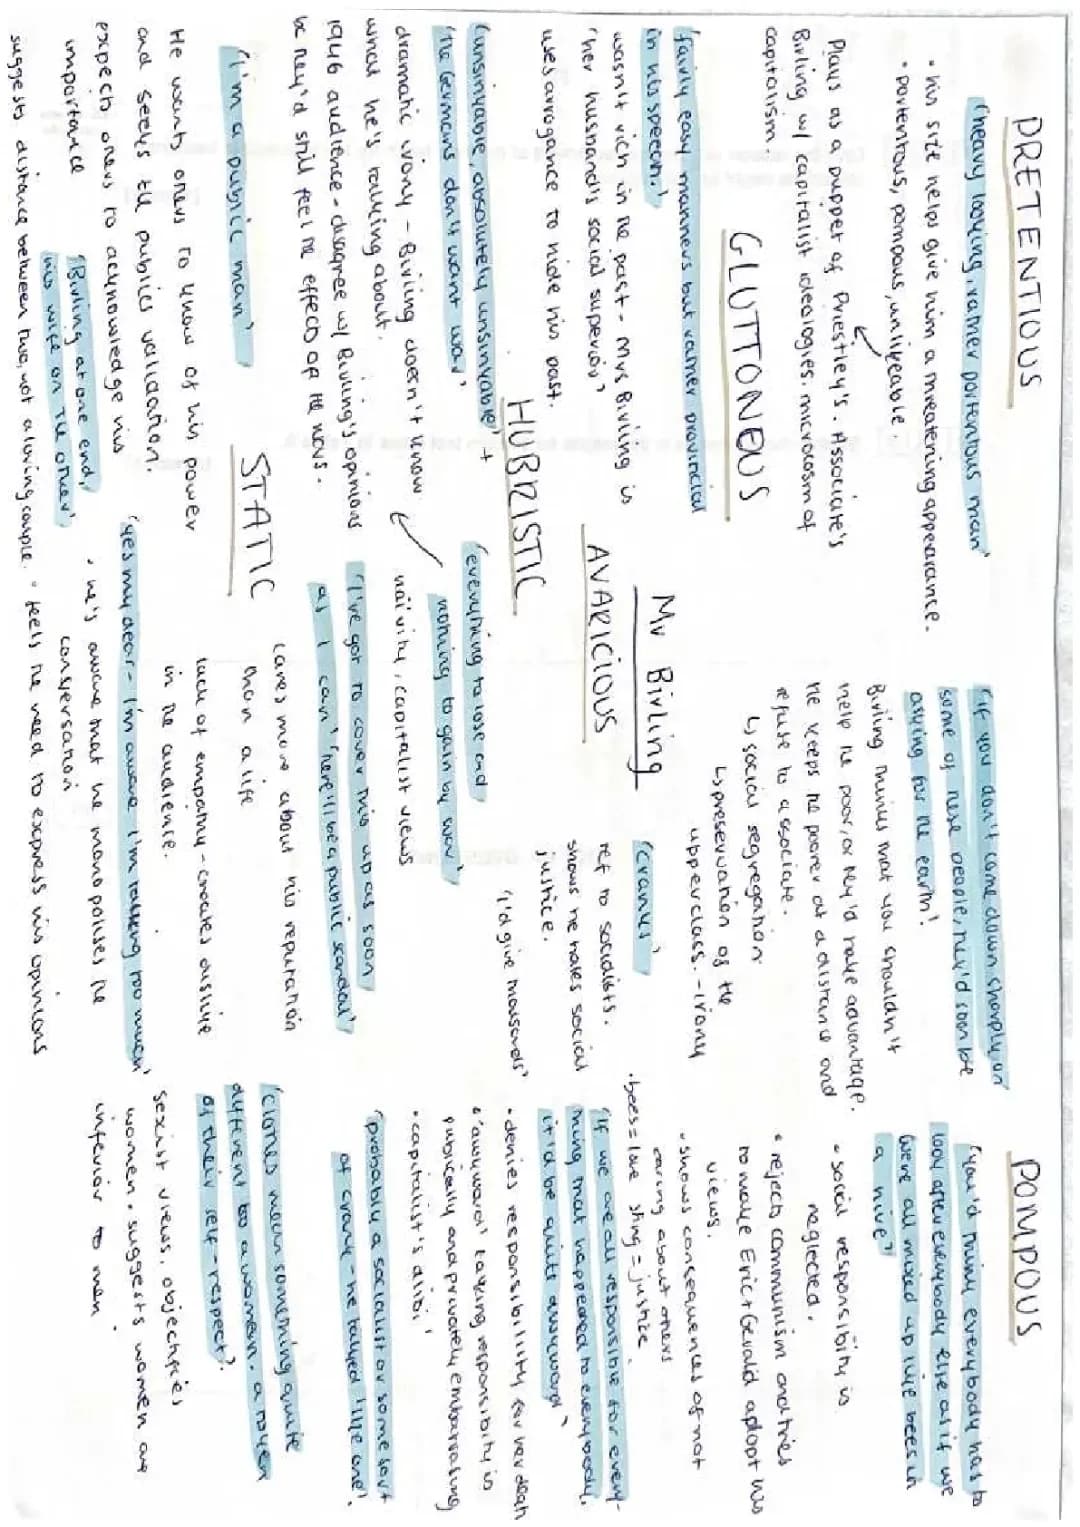 PRETENTIOUS
'heavy looking, rather portentous man'
• his size helps give him a threatening appearance.
• portentous, pompous, unlikeable
Plays as a puppet of Priestley's. Associate's
Birling w/ capitalist ideologies. microcosm of
capitalism.
GLUTTONEUS
'fairly easy manners but rather provincial
in his speech.'
wasn't rich in the past - Mrs Birling is
'her husband's social superior'
uses arrogance to hide his past.
HUBRISTIC
'unsinkable, absolutely unsinkable' +
'the Germans don't want war'
dramatic irony - Birling doesn't know
what he's talking about.
1946 audience - disagree w/ Birling's opinions
bc they'd still feel the effects of the wars.
STATIC
'I'm a public man'
He wants others to know of his power
and seeks the publics validation.
expects others to acknowledge his
importance
'Birling at one end,
his wife on the other'
suggests distance between two, not a loving couple.
Mr Birling
AVARICIOUS
'everything to lose and
nothing to gain by war'
naivity, capitalist views
'I've got to cover this up as soon
as I can' 'there'll be a public scandal'
cares more about his reputation
than a life
lack of empathy - creates dislike
in the audience.
'yes my dear - I'm aware I'm talking too much'
• he's aware that he monopolises the
conversation
• feels the need to express his opinions
'if you don't come down sharply on
some of these people, they'd soon be
asking for the earth!
Birling thinks that you shouldn't
help the poor, or they'd take advantage.
He keeps the poorer at a distance and
refuse to associate.
↳ social segregation
↳ preservation of the
upperclass. - irony
'Cranks'
ref to socialists.
shows he hates social
justice.
'I'd give thousands'
POMPOUS
'you'd think everybody has to
look after everybody else as if we
were all mixed up like bees in
a hive'
• social responsibity is
neglected.
• rejects communism and tries
to make Eric + Gerald adopt his
views.
• shows consequences of not
caring about others
• bees = love sting = justice
'if we are all responsible for every-
thing that happened to everybody,
it'd be quite awkward'
• denies responsibility for her death
• 'awkward' taking responsibity is
publically and privately embarrasing
• capitalist's alibi'
'probably a socialist or some sort
of crank - he talked like one'.
'Clothes mean something quite
different to a women. a token
of their self-respect'.
sexist views, objectifies
women. suggests women are
inferior to men